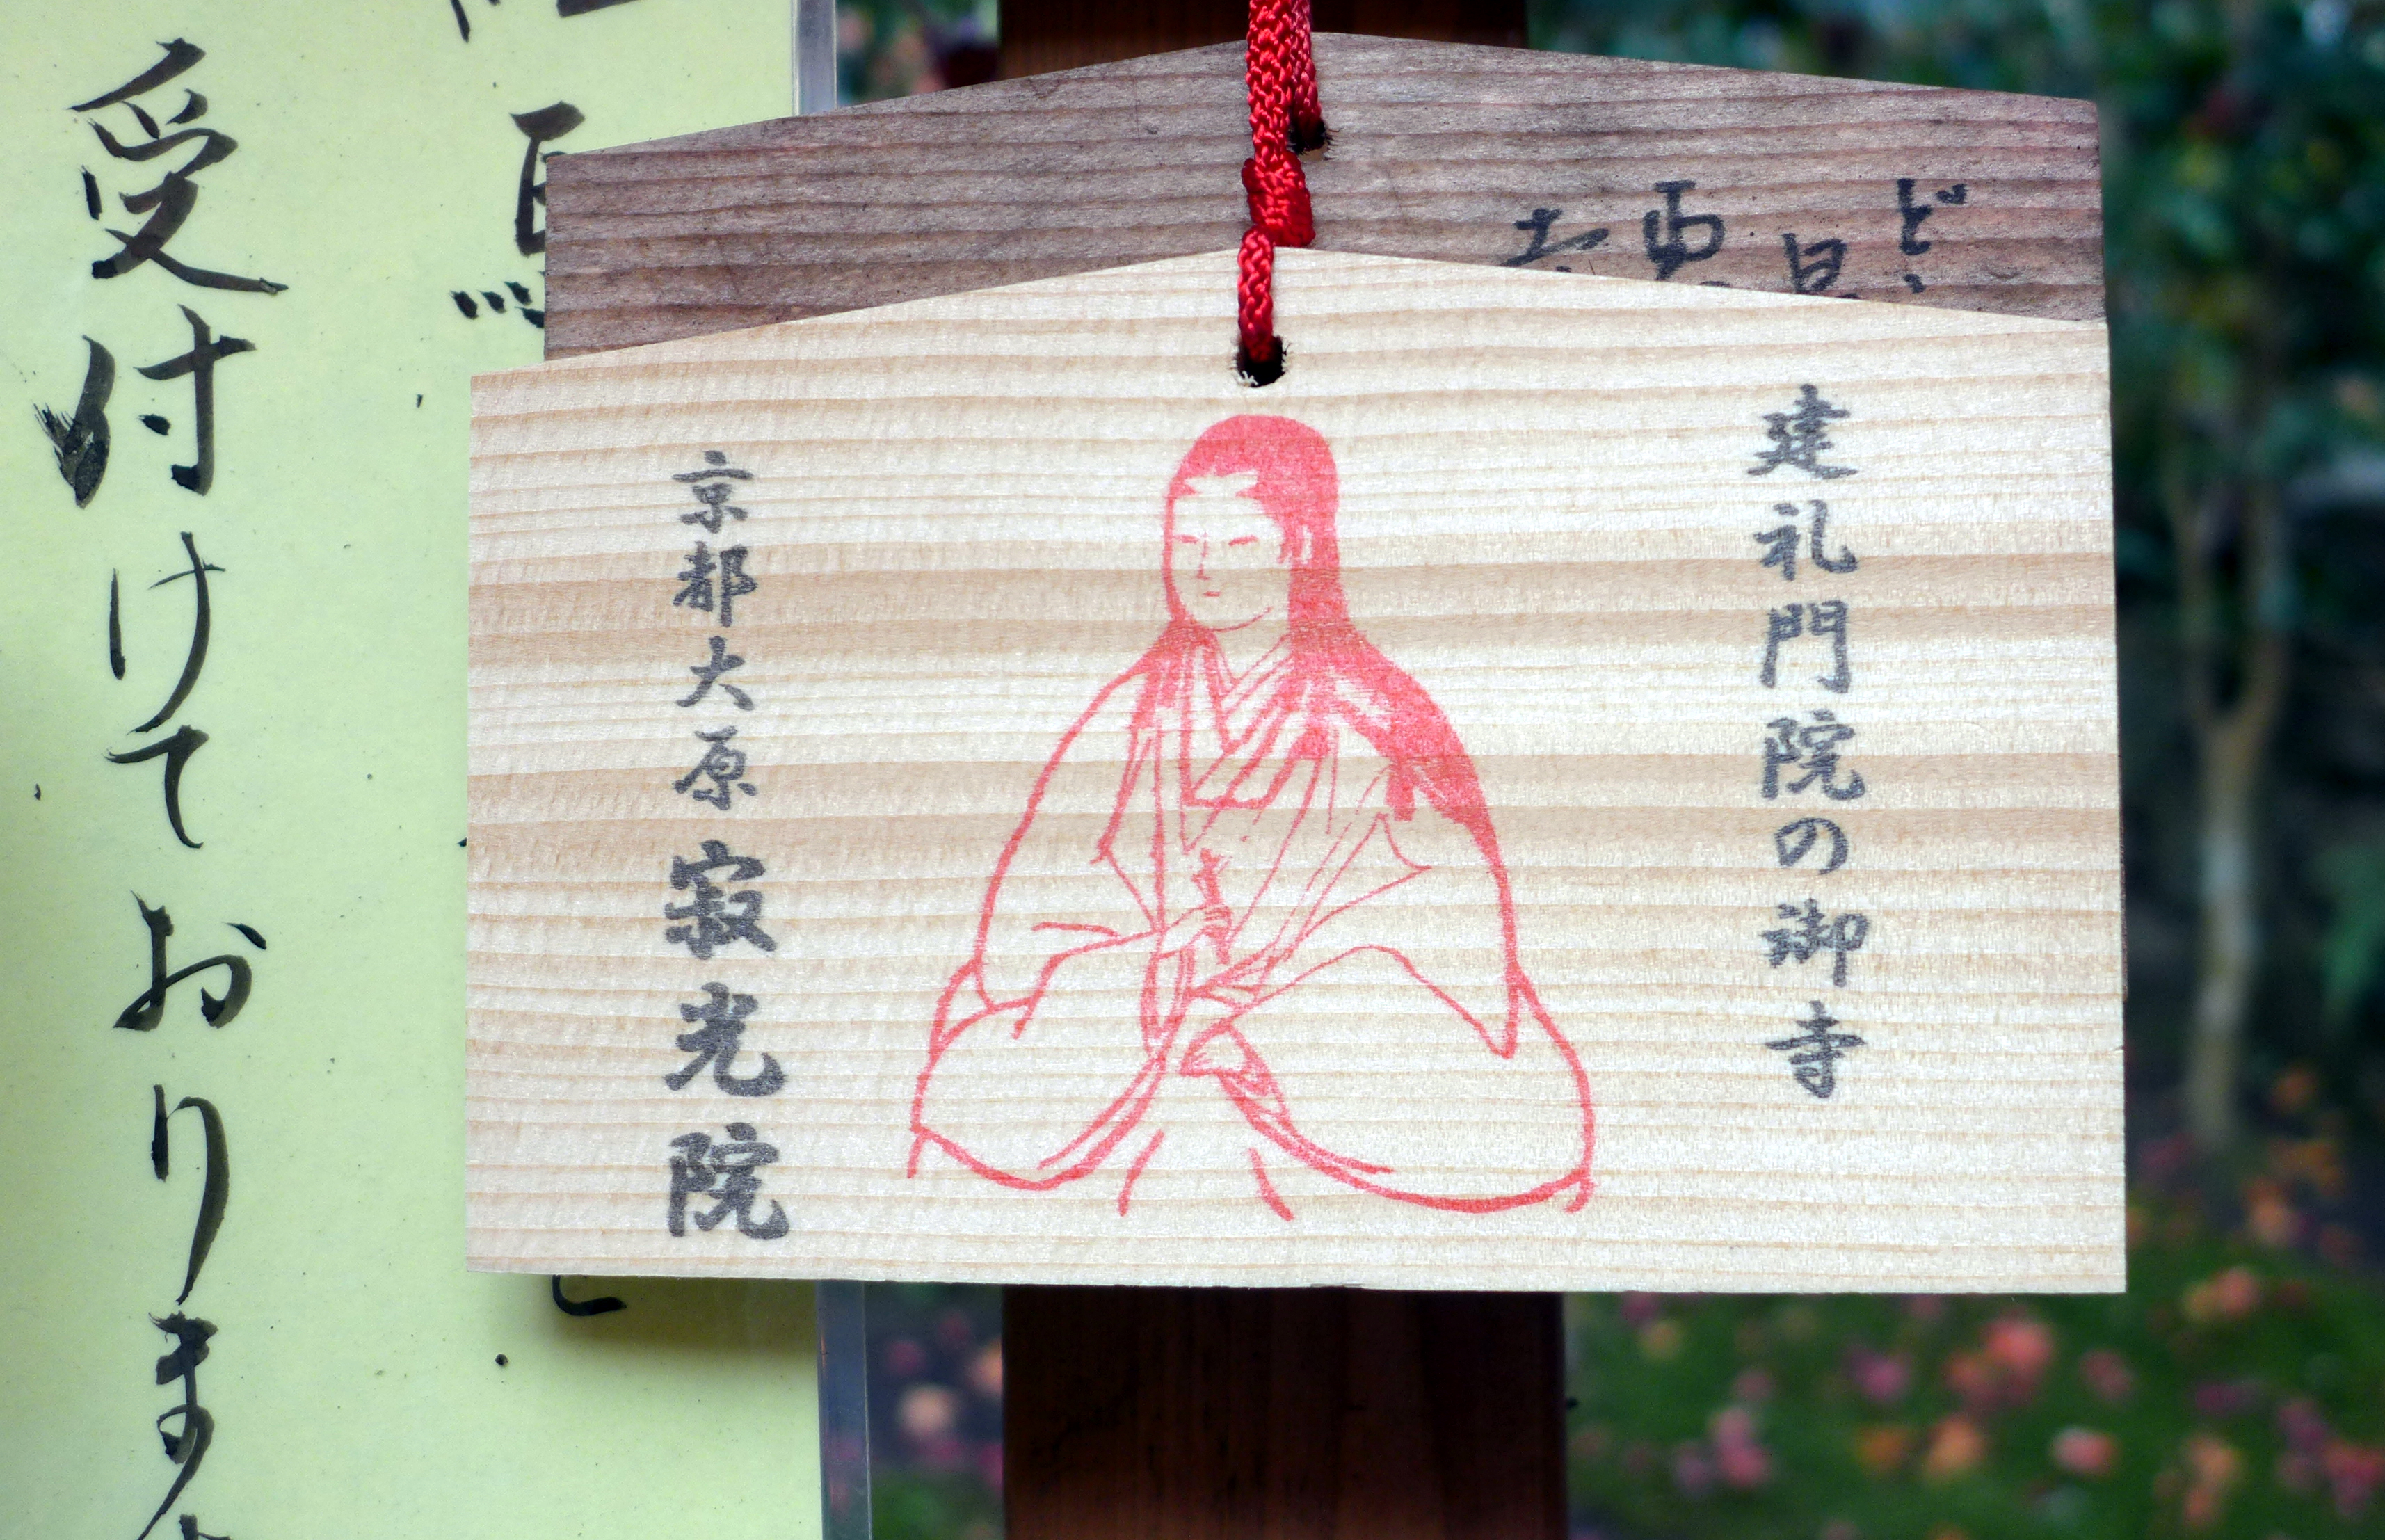 建礼門院の御寺
京都大原寂光院
受付けております